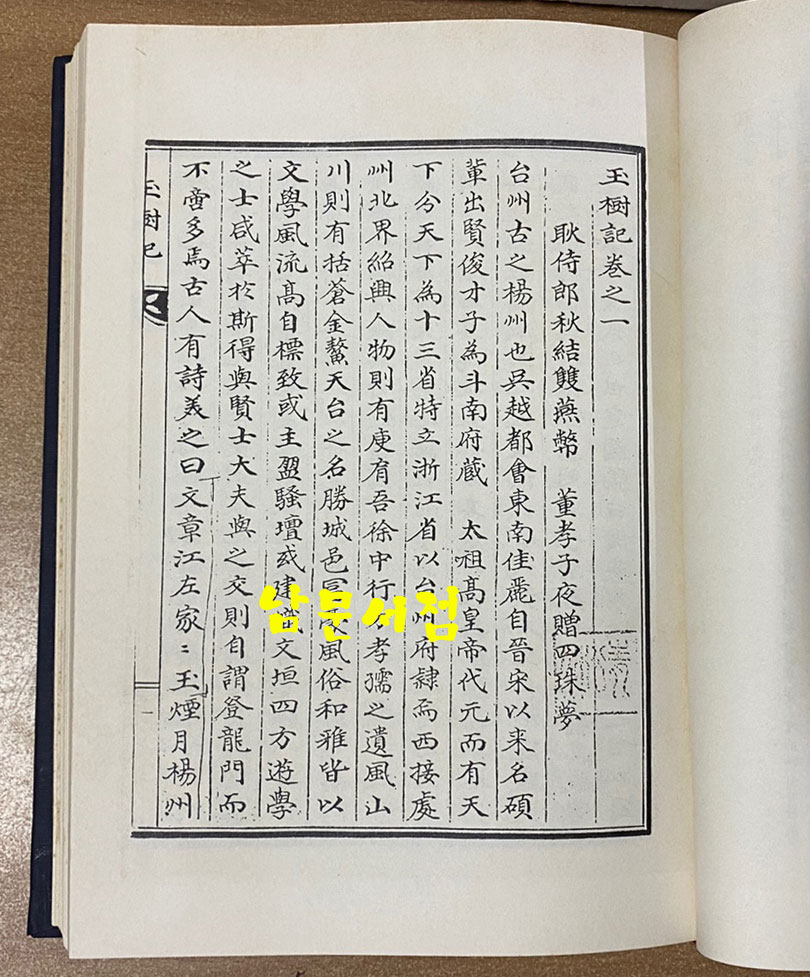 玉樹記卷之一
耿侍郎秋結雙燕幣 董孝子夜贈四珠夢
台州古之楊州也吳越都會東南佳麗自晉宋以来名碩
輩出賢俊才子為斗南府蔵 太祖高皇帝代元而有天
下分天下為十三省特立浙江省以台州府隸焉西接處
州北界紹興人物則有庾肓吾徐中行方孝孺之遺風山
川則有括蒼金鰲天台之名勝城邑風俗和雅皆以
文學風流高自標致或主盟騷壇或建幟文垣四方遊學
之士咸萃於斯得與賢士大夫與之交則自謂登龍門而
不啻多焉古人有詩美之曰文章江左家〻玉煙月楊州
玉樹記
一
남문서점